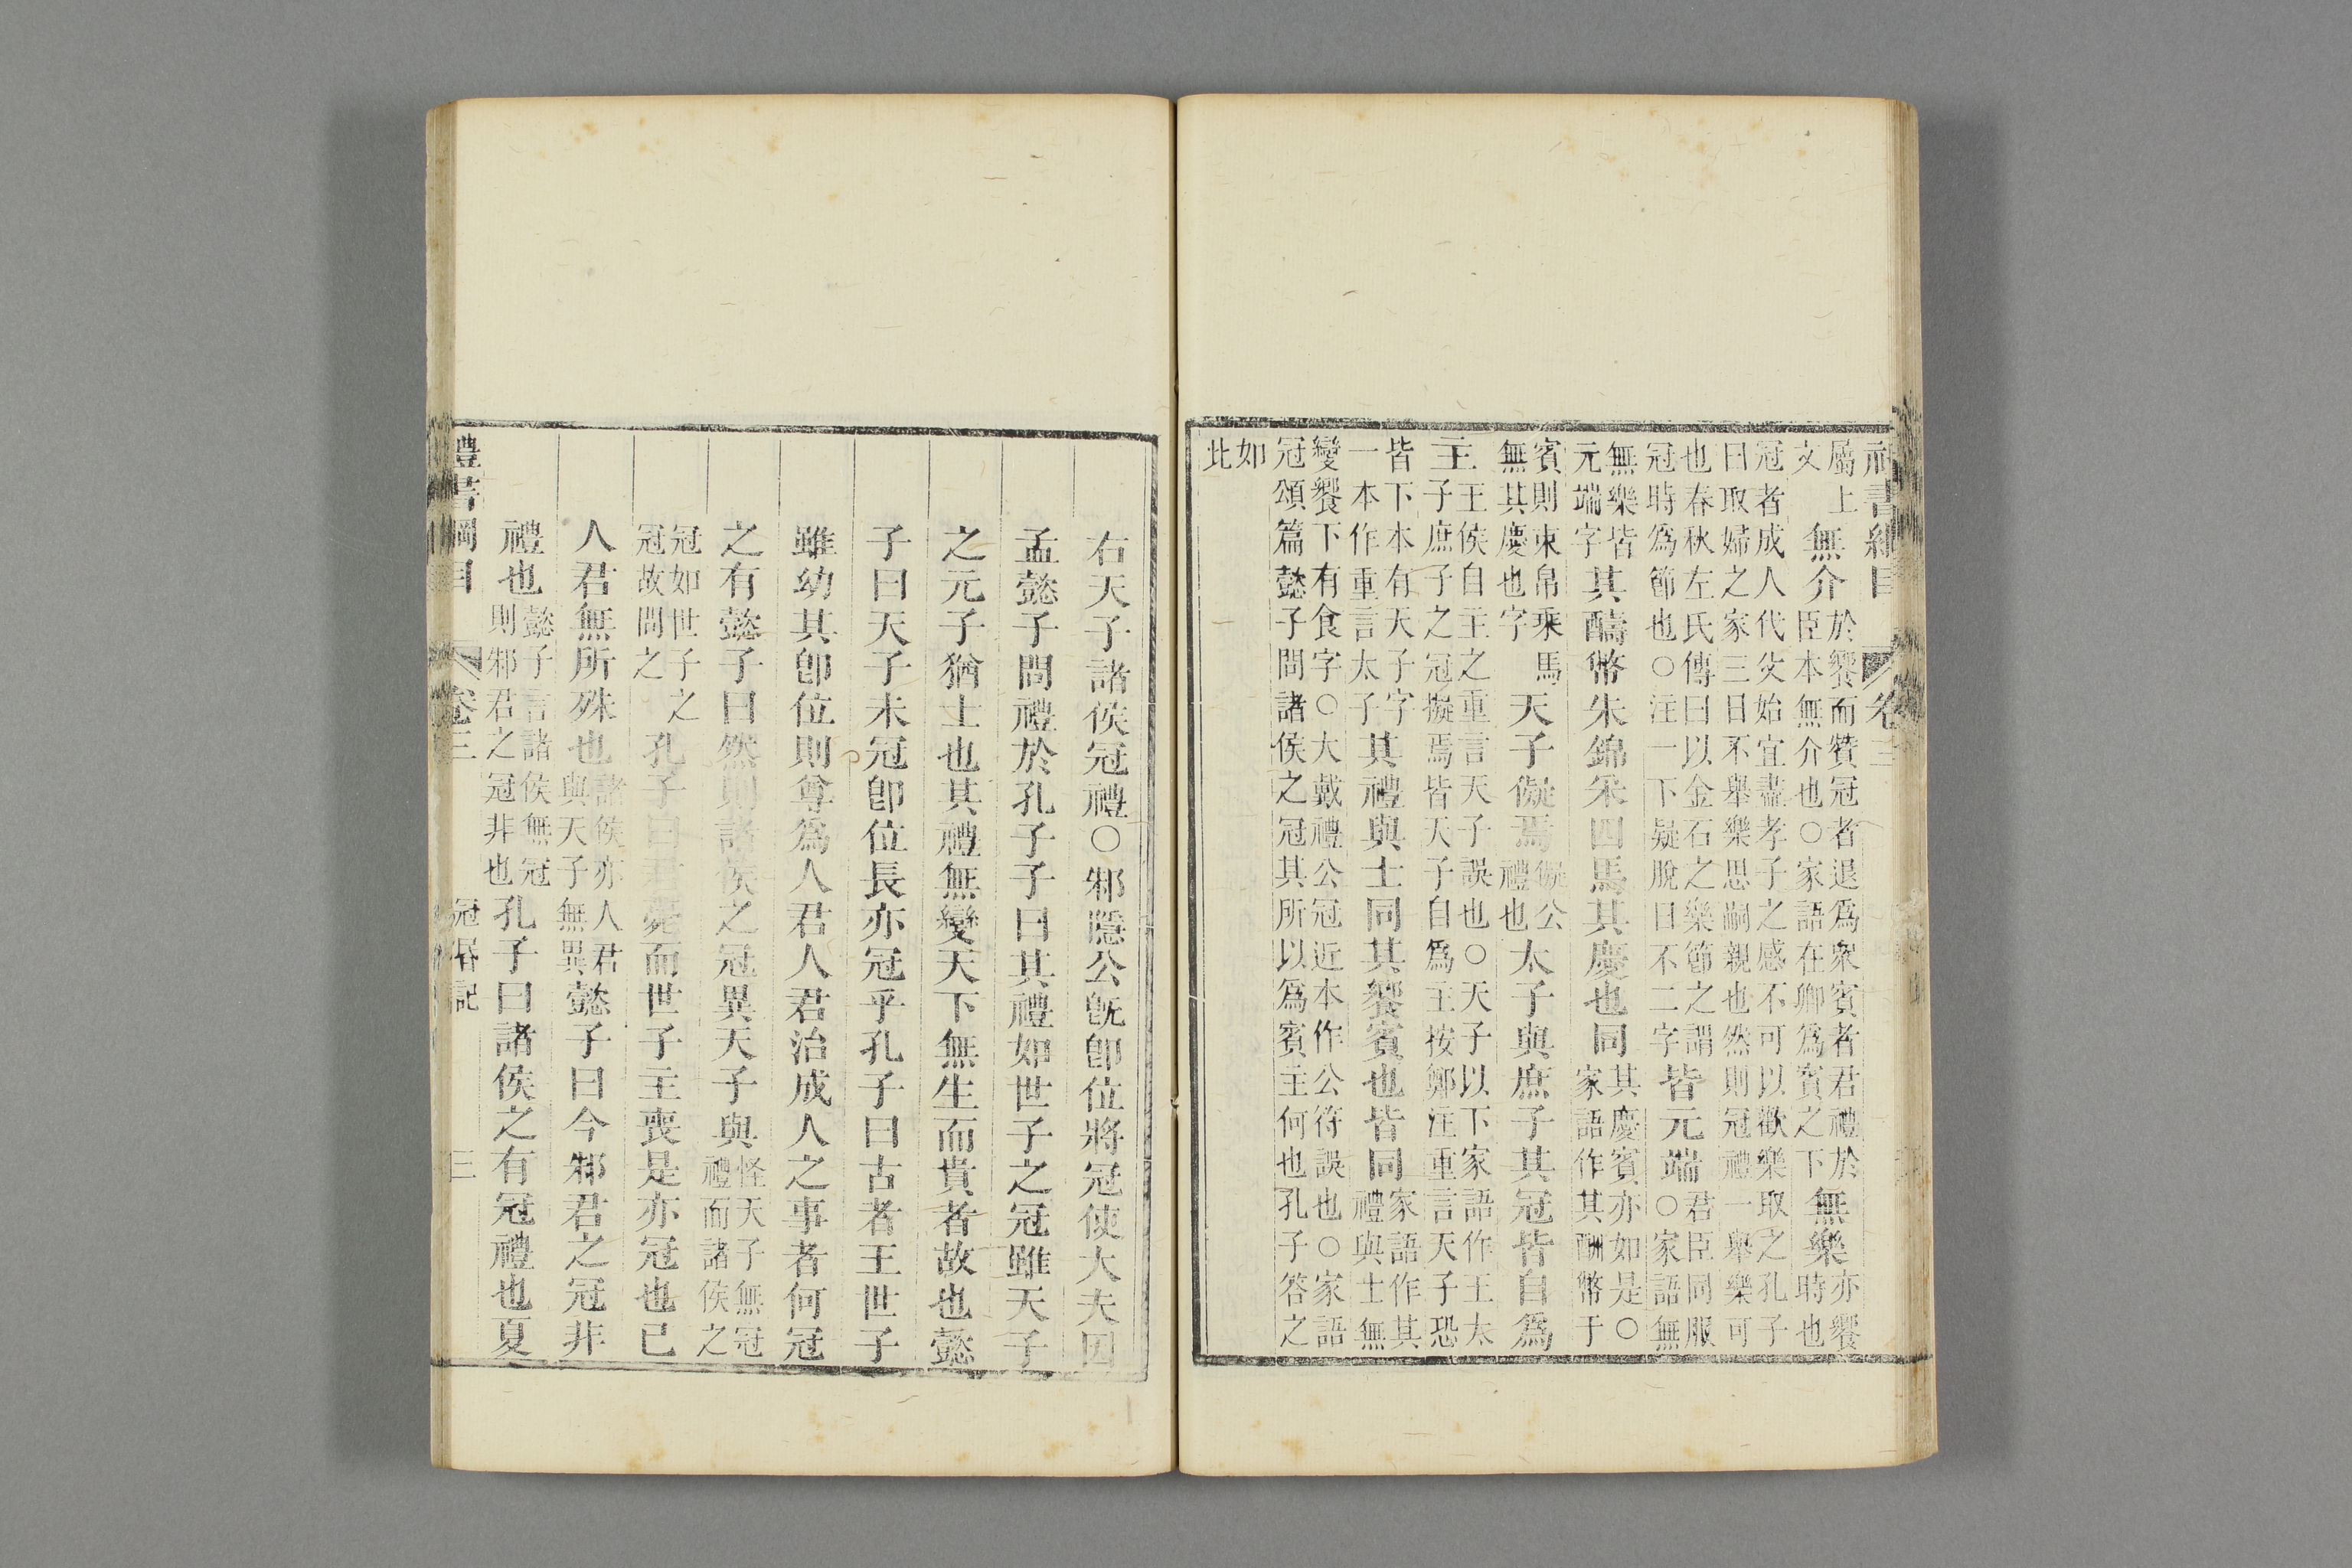 禮書綱目　卷三
屬上文無介於饗而贊冠者退爲衆賓者君禮於臣本無介也○家語在卿爲賓之下無樂亦饗時也
冠者成人代父始宜盡孝子之感不可以歡樂取之孔子曰取婦之家三日不舉樂思嗣親也然則冠禮一舉樂可
也春秋左氏傳曰以金石之樂節之謂冠時爲節也○注一下疑脫日不二字皆元端君臣同服○家語無
無樂皆元端字其醻幣朱錦采四馬其慶也同其慶賓亦如是○家語作其酬幣于
賓則束帛乘馬無其慶也字天子儗焉儗公禮也太子與庶子其冠皆自爲
主王侯自主之重言天子誤也○天子以下家語作王太子庶子之冠擬焉皆天子自爲主按鄭注重言天子恐
皆下本有天子字一本作重言太子其禮與士同其饗賓也皆同家語作其禮與士無
變饗下有食字○大戴禮公冠近本作公符誤也○家語冠頌篇懿子問諸侯之冠其所以爲賓主何也孔子答之
如此
右天子諸侯冠禮○邾隱公旣卽位將冠使大夫因
孟懿子問禮於孔子子曰其禮如世子之冠雖天子
之元子猶士也其禮無變天下無生而貴者故也懿
子曰天子未冠卽位長亦冠乎孔子曰古者王世子
雖幼其卽位則尊爲人君人君治成人之事者何冠
之有懿子曰然則諸侯之冠異天子與怪天子無冠禮而諸侯之
冠如世子之冠故問之孔子曰君薨而世子主喪是亦冠也已
人君無所殊也諸侯亦人君與天子無異懿子曰今邾君之冠非
禮也懿子言諸侯無冠則邾君之冠非也孔子曰諸侯之有冠禮也夏
禮書綱目　卷三　冠昏記　三